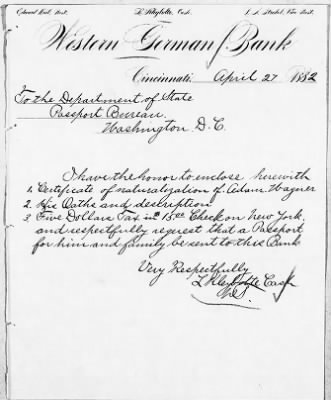 Western German Bank
Cincinnati April 27 1882
To the Department of State
Passport Bureau
Washington D.C.
I have the honor to enclose herewith
1. Certificate of naturalization of Adam Wagner
2. His Oaths and description
3. Five Dollars Tax in Check on New York,
and respectfully request that a Passport
for him and family be sent to this Bank
Very Respectfully
Cash